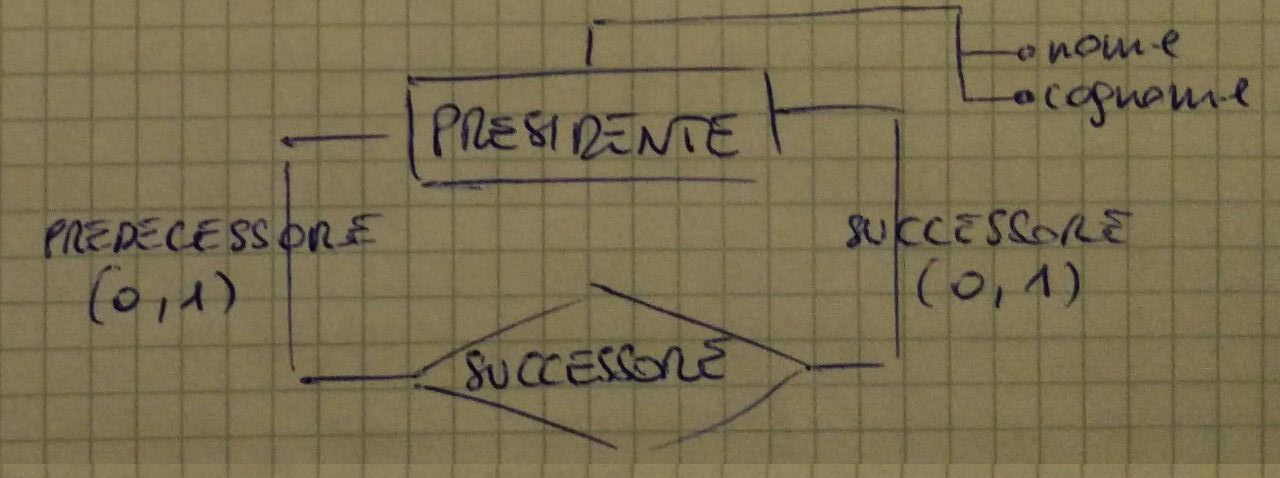 nome
cognome
PRESIDENTE
PREDECESSORE
(0,1)
SUCCESSORE
(0,1)
SUCCESSORE